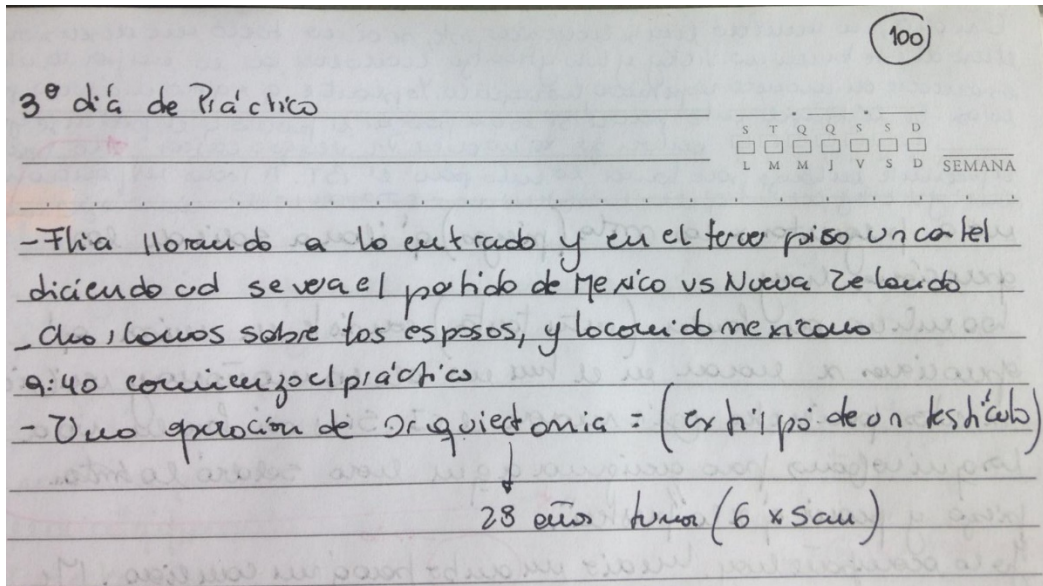 100
3º día de Práctico
S T Q Q S S D
L M M J V S D SEMANA
- Flia llorando a la entrada y en el tercer piso un cartel
diciendo ud se vera el partido de Mexico vs Nueva Zelanda
- sobre los esposos, y la comida mexicana
9:40 comienza el práctico
- Una operación de Orquiectomia = ( de un testículo)
28 años tumor (6 x 5 cm)